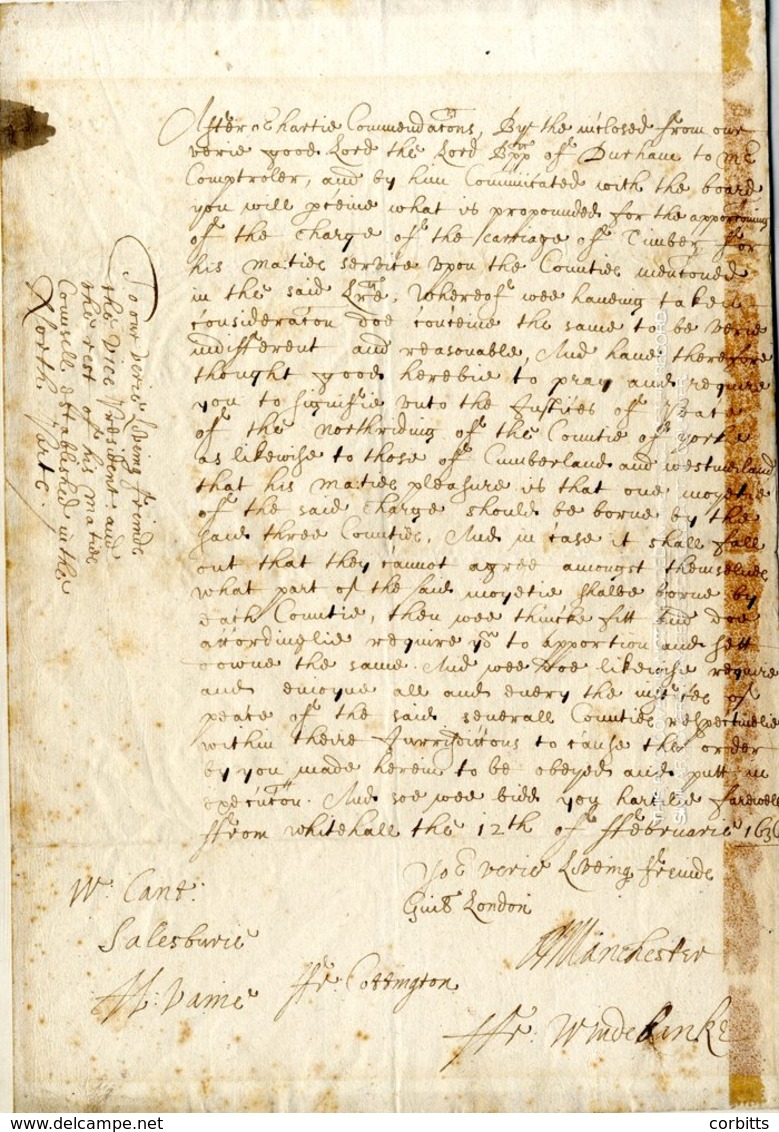 After or hartie Commendacons, By the inclosed from our
verie good Lord the Lord Bpp of Durham to mr
Comptroler, and by him Communicated with the board
you will pceive what is propounded for the apportioning
of the charge of the carriage of Timber for
his maties service upon the Counties mentioned
in the said Lre, Whereof wee haveing taken
consideracon doe conceive the same to be verie
indifferent and reasonable, And have therefore
thought good herebie to pray and require
you to signifie unto the Justices of Peace
of the northriding of the Countie of yorke
as likewise to those of Cumberland and westmerland
that his maties pleasure is that one moyetie
of the said charge should be borne by the
said three Counties, And in case it shall fall
out that they cannot agree amongst themselves
what part of the said moyetie shalbe borne by
each Countie, then wee thincke fitt and doe
accordinglie require yo to apportion and sett
downe the same. And wee doe likewise require
and enioyne all and every the iustices of
peace of the said severall Counties respectivelie
within theire Jurisdiccons to cause the order
by you made herein to be obeyed and putt in
execucon. And soe wee bidd you hartilie farewell
ffrom whitehall the 12th of ffebruarie 1636
Yor verie Loveing freinds
To our verie loving freinds
the vice President and
the rest of his maties
Counsell established in the
North Parts.
W: Cant:
Guil: London
Salesburie
HManchester
H: Vane
ffr: Cottington
ffr: Windebanke
delcampe.net
corbitts